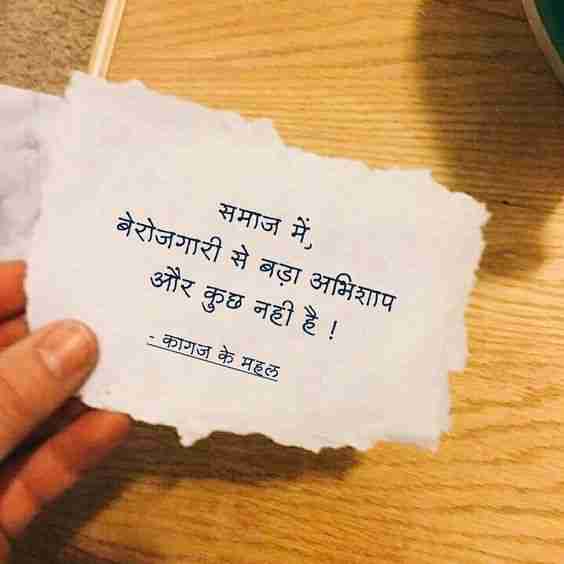 समाज में,
बेरोजगारी से बड़ा अभिशाप
और कुछ नही है !
- कागज के महल